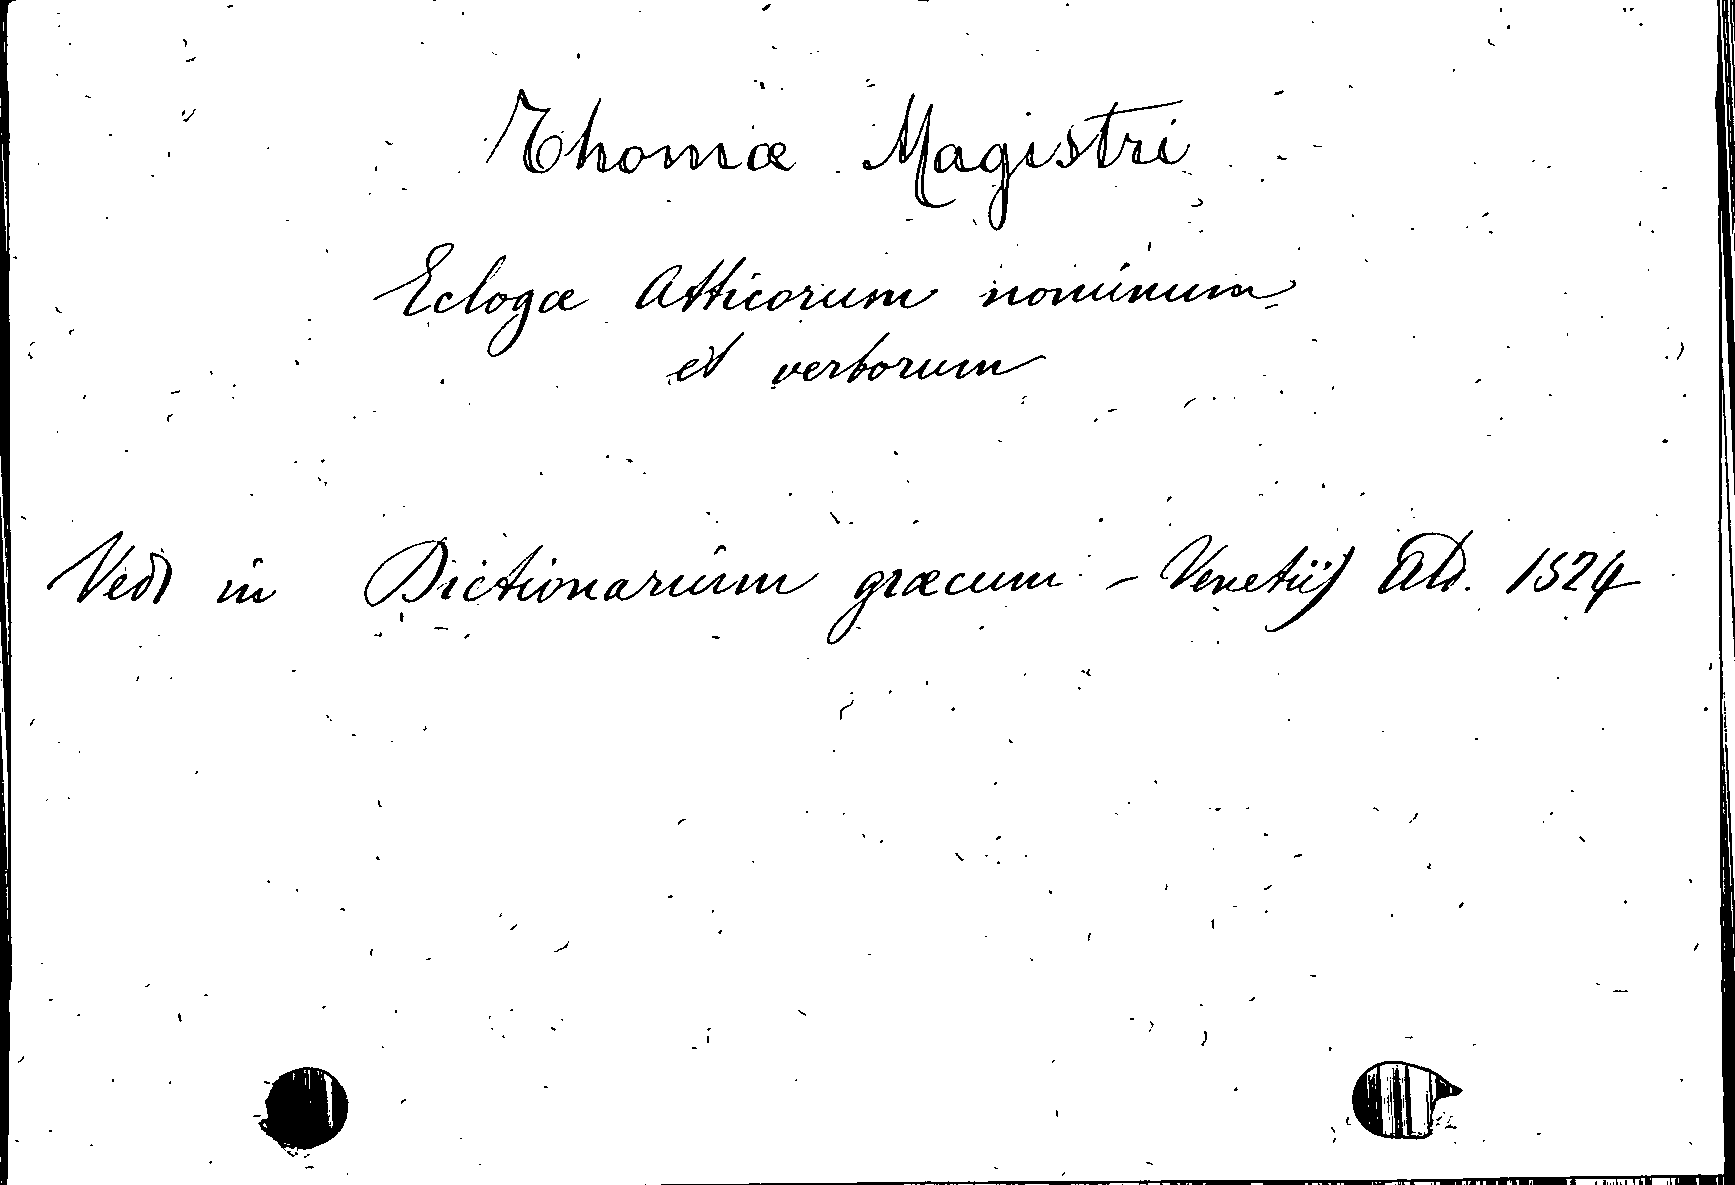 Thomæ Magistri
Eclogæ Atticorum nominum
et verborum
Vedi in Dictionarium græcum - Venetiis Ald. 1524